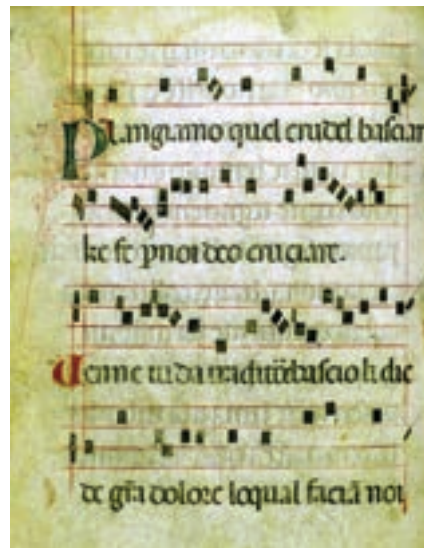 Plangiamo quel crudel basciar
ke fe pnoi deo cruciare.
Uenne iuda traditore bascio li die
de grã dolore loqual faciã noi